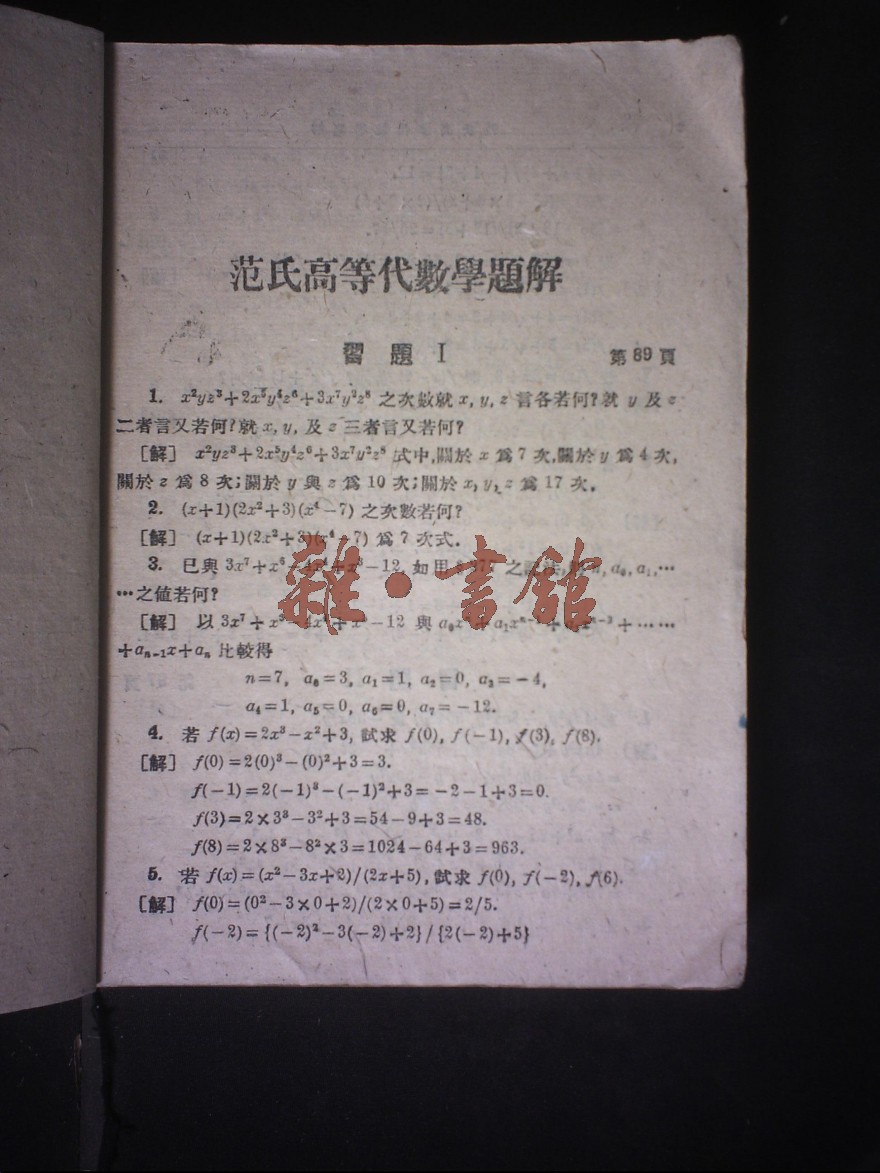 范氏高等代數學題解
習題 I 第89頁
1. x²yz³+2x⁵y⁴z⁶+3x⁷y²z⁸ 之次數就 x, y, z 言各若何?就 y 及 z
二者言又若何?就 x, y, 及 z 三者言又若何?
[解] x²yz³+2x⁵y⁴z⁶+3x⁷y²z⁸ 式中,關於 x 爲 7 次,關於 y 爲 4 次,
關於 z 爲 8 次;關於 y 與 z 爲 10 次;關於 x, y, z 爲 17 次。
2. (x+1)(2x²+3)(x⁴−7) 之次數若何?
[解] (x+1)(2x²+3)(x⁴−7) 爲 7 次式.
3. 已與 3x⁷+x⁶−4x⁴+x³−12 如用 之 a₀, a₁,…
…之値若何?
[解] 以 3x⁷+ −12 與 a₀x +a₁x + +……
+aₙ₋₁x+aₙ 比較得
n=7, a₀=3, a₁=1, a₂=0, a₃=−4,
a₄=1, a₅=0, a₆=0, a₇=−12.
4. 若 f(x)=2x³−x²+3, 試求 f(0), f(−1), f(3), f(8).
[解] f(0)=2(0)³−(0)²+3=3.
f(−1)=2(−1)³−(−1)²+3=−2−1+3=0.
f(3)=2×3³−3²+3=54−9+3=48.
f(8)=2×8³−8²×3=1024−64+3=963.
5. 若 f(x)=(x²−3x+2)/(2x+5), 試求 f(0), f(−2), f(6).
[解] f(0)=(0²−3×0+2)/(2×0+5)=2/5.
f(−2)={(−2)²−3(−2)+2}/{2(−2)+5}
雜·書館